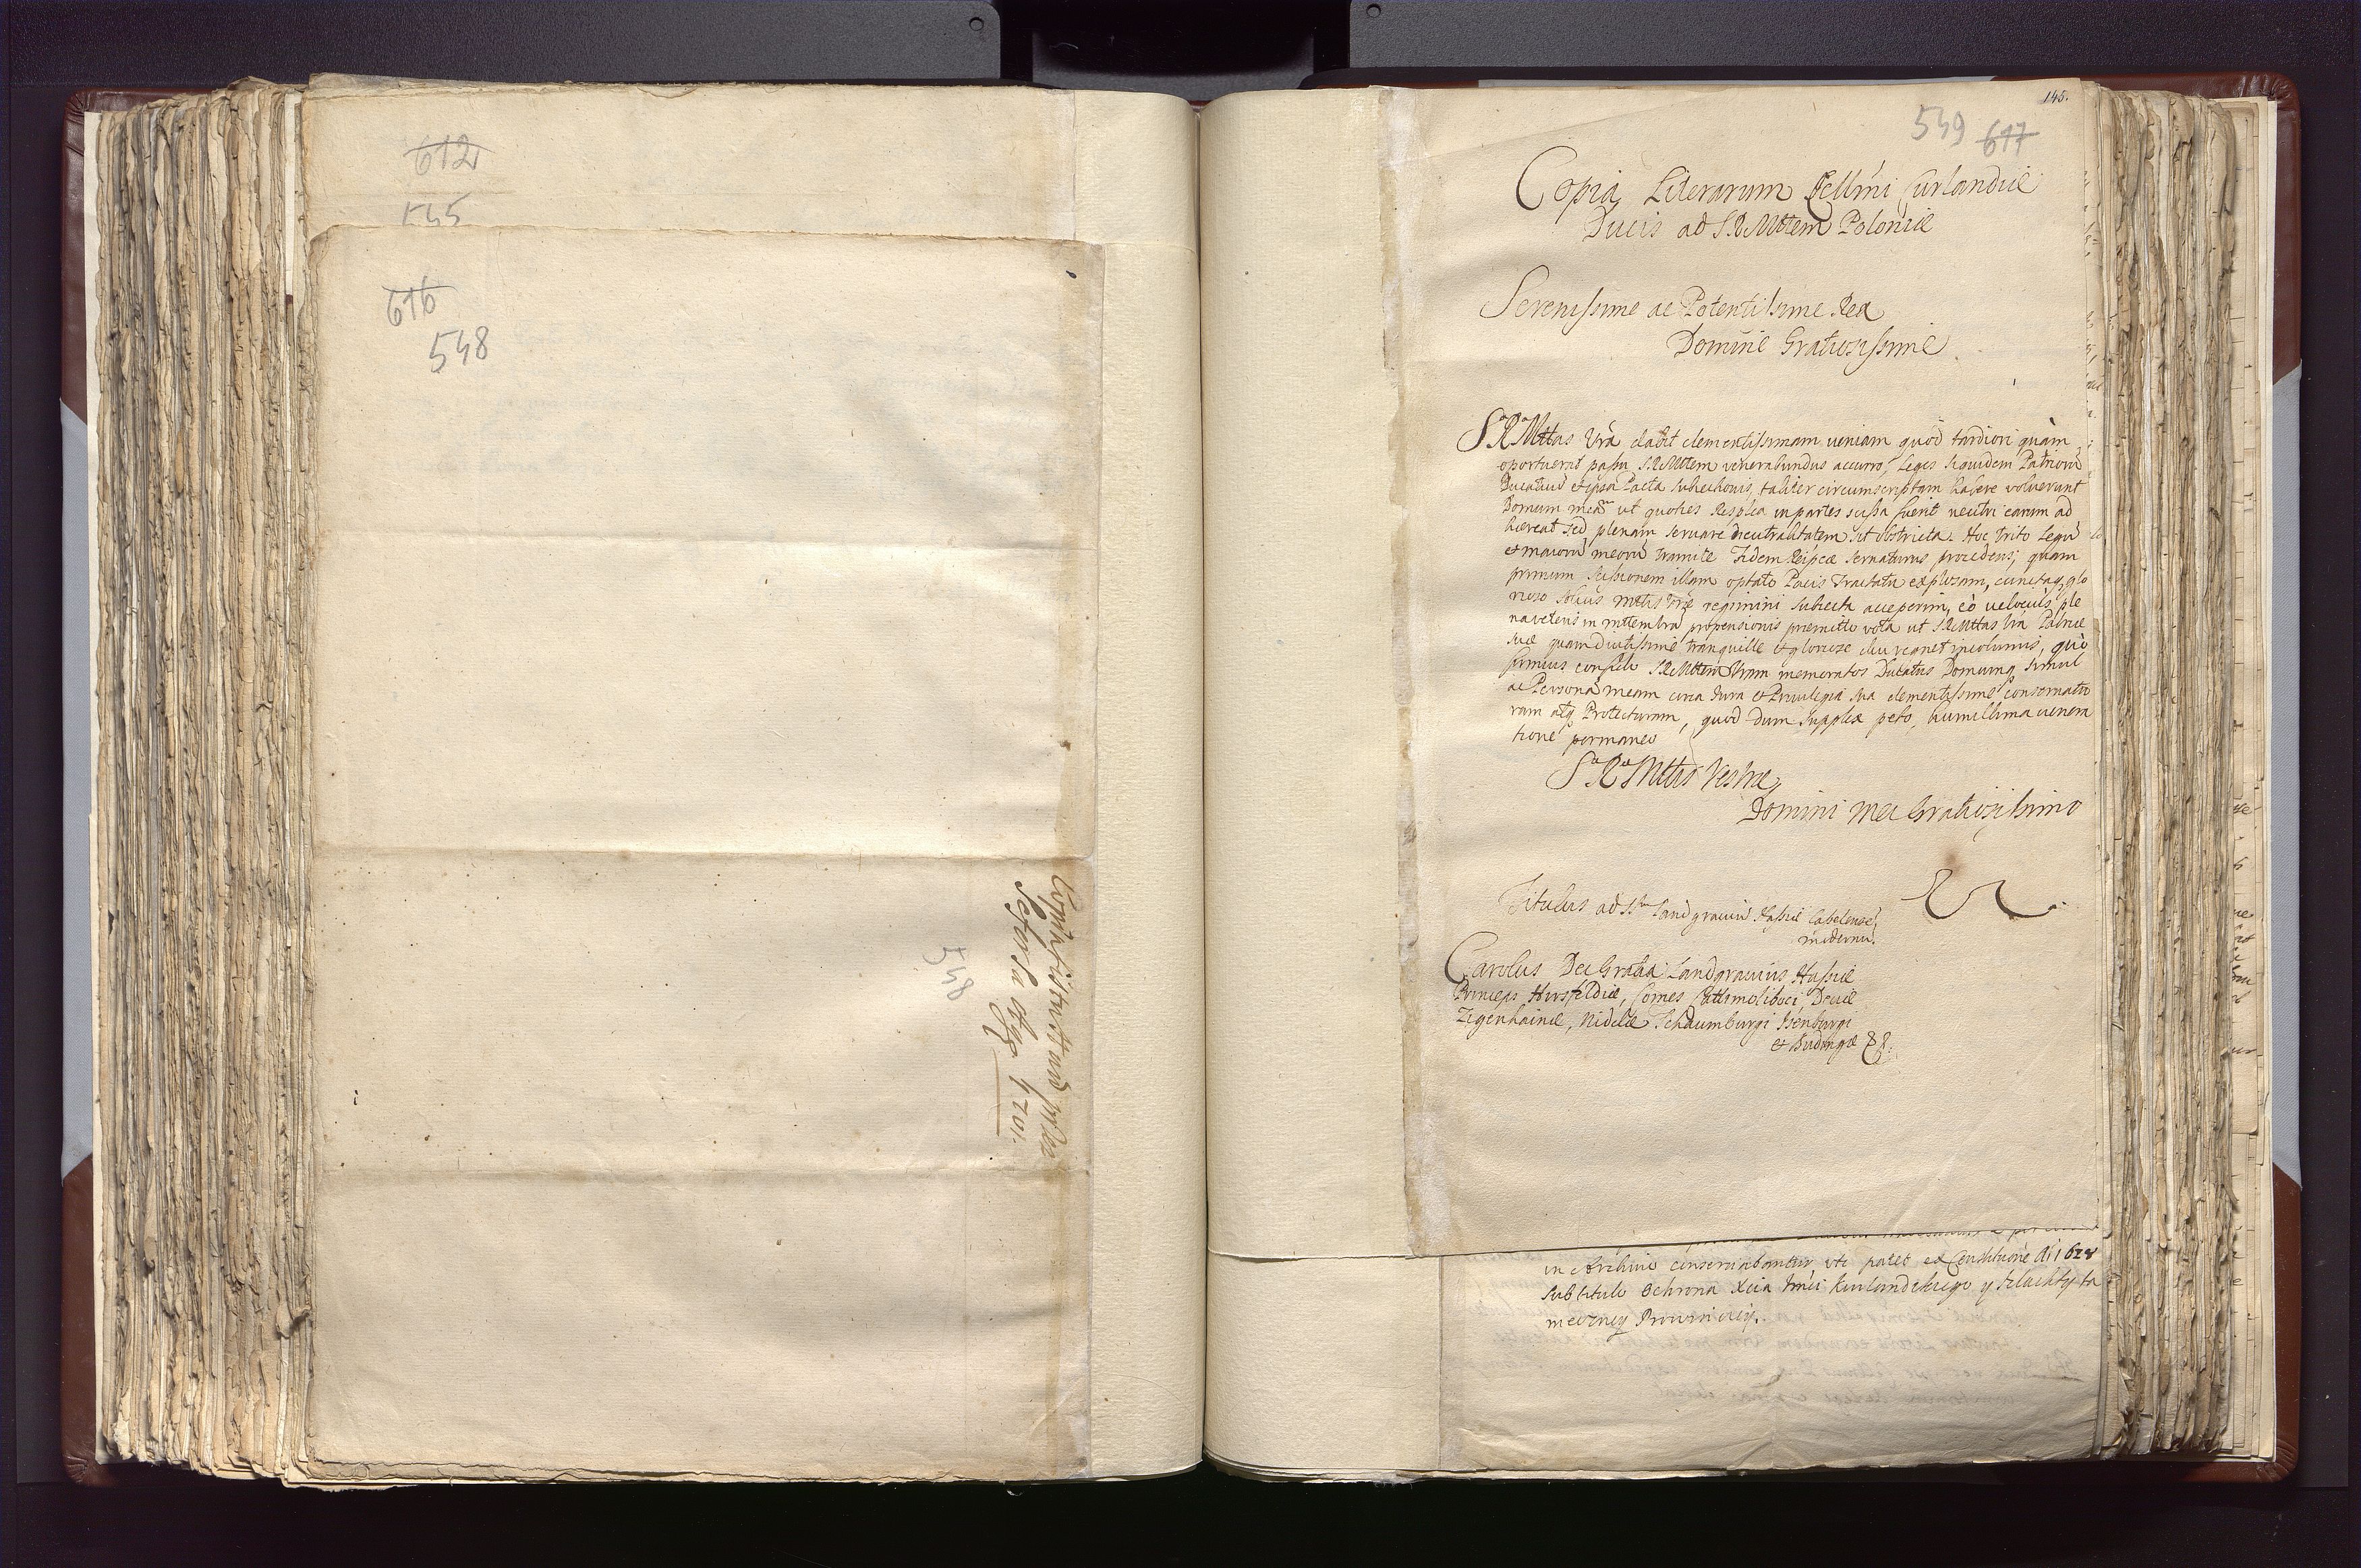 612
545
616
548
548
145.
549 617
Copia Literarum Celsmi Curlandiæ
Ducis ad S.R.Mttem Poloniæ
Serenissime ac Potentissime Rex
Domine Gratiosissime
S.R.Mttas Vra dabit clementissimam ueniam quod tardiori quàm
oportuerit passu S.R.Mttem venerabundus accurro, Leges siquidem Patriorū
Ducatuū et ipsa Pacta Subiectionis, taliter circumscriptam habere voluerunt
Domum meā ut quoties Resplca in partes scissa fuerit neutri earum ad
hæreat sed plenam seruare neutralitatem sit obstricta. Hoc trito Legū
et maiorū meorū tramite Fidem Reipcæ seruaturus procedens, quam
primum Scissionem illam optato Pacis tractatu explosam, cunctaq glo
rioso Solius Mttis Vræ regimini subiecta acceperim, eò velocius ple
na veteris in Mttem Vrā propensionis præmitto vota ut S.R.Mttas Vra Patriæ
suæ quam diutissimè tranquille et gloriose diu regnet incolumis, quò
firmius confido S.R.Mttem Vram memoratos Ducatus Domumq simul
ac Personā meam circa Iura et Priuilegia sua clementissimè conseruatu
ram atq Protecturam, quod dum supplex peto, humillima uenera
tione permaneo
S.R.Mttis Vestræ
Domini mei Gratiosissimo
Titulus ad S. Landgrauiū Hassiæ Casselensē
modernū.
Carolus Dei Gratia Landgrauius Hassiæ
Princeps Hirsfeldiæ, Comes Cattimeliboci Deciæ
Zigenhainæ, Niddæ Schaumburgi Isenburgi
et Budingæ &&.
in Archiuo conseruabantur uti patet ex Constitutione Ai 1628
sub titulo Ochrona Xcia Imci Kurlandskiego y Szlachty ta
meczney Prowinciey.